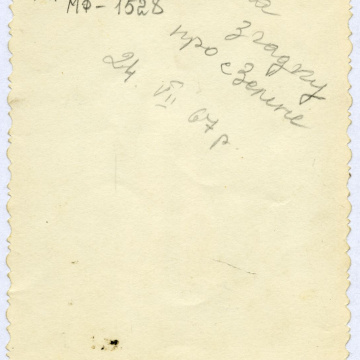 МФ-1528
на
згадку
про с Зелене
24. VII 67 р.